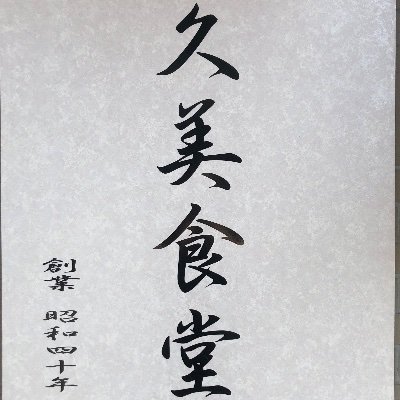 久美食堂
創業 昭和四十年